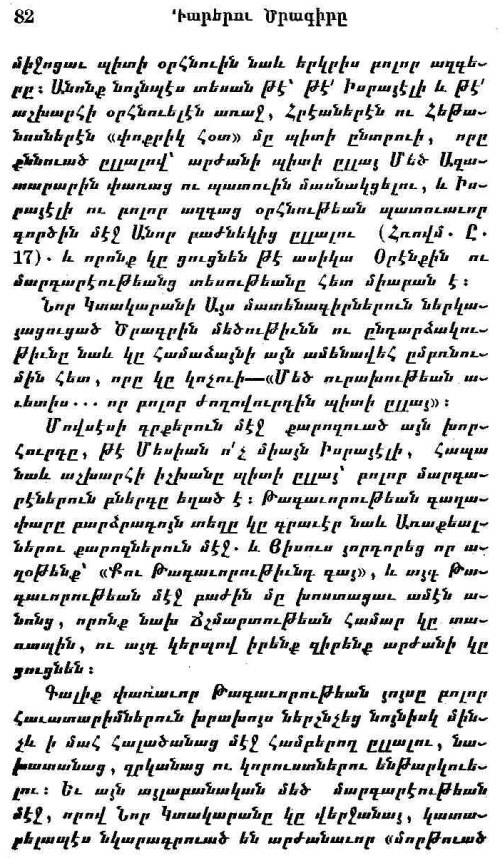 82 Դարերու Ծրագիրը
միջոցաւ պիտի օրհնուին նաև երկրիս բոլոր ազգե-
րը։ Անոնք նոյնպէս տեսան թէ՝ թէ՛ Իսրայէլի և թէ՛
աշխարհի օրհնուելէն առաջ, Հրէաներէն ու Հեթա-
նոսներէն «փոքրիկ հօտ» մը պիտի ընտրուի, որը
քննուած ըլլալով՝ արժանի պիտի ըլլայ Մեծ Ազա-
տարարին փառաց ու պատուին մասնակցելու, և Իս-
րայէլի ու բոլոր ազգաց օրհնութեան պատուաւոր
գործին մէջ Անոր բաժնեկից ըլլալու (Հռովմ. Ը.
17). և որոնք կը ցուցնեն թէ ասիկա Օրէնքին ու
մարդարէութեանց տեսութեանը հետ միարան է։
Նոր Կտակարանի Այս մատենագիրներուն ներկա-
յացուցած Ծրագրին մեծութիւնն ու ընդարձակու-
թիւնը նաև կը համաձայնի այն ամենավեհ ըմբռնու-
մին հետ, որը կը կոչուի—«Մեծ ուրախութեան ա-
ւետիս... որ բոլոր ժողովուրդին պիտի ըլլայ»։
Մովսէսի գրքերուն մէջ քարոզուած այն խոր-
հուրդը, թէ Մեսիան ո՛չ միայն Իսրայէլի, Հապա
նաև աշխարհի իշխանը պիտի ըլլայ՝ բոլոր մարգա-
րէներուն բներգը եղած է։ Թագաւորութեան գաղա-
փարը բարձրագոյն տեղը կը գրաւէր նաև Առաքեալ-
ներու քարոզներուն մէջ. և Յիսուս յորդորեց որ ա-
ղօթենք՝ «Քու Թագաւորութիւնդ գայ», և այդ Թա-
գաւորութեան մէջ բաժին մը խոստացաւ ամէն ա-
նոնց, որոնք նախ Ճշմարտութեան համար կը տա-
ռապին, ու այդ կերպով իրենք զիրենք արժանի կը
ցուցնեն։
Գալիք փառաւոր Թագաւորութեան յոյսը բոլոր
հաւատարիմներուն խրախոյս ներշնչեց նոյնիսկ մին-
չև ի մահ հալածանաց մէջ համբերող ըլլալու, նա-
խատանաց, զրկանաց ու կորուստներու ենթարկուե-
լու։ Եւ այն այլաբանական մեծ մարգարէութեան
մէջ, որով Նոր Կտակարանը կը վերջանայ, կատա-
րելապէս նկարագրուած են արժանաւոր «մորթուած